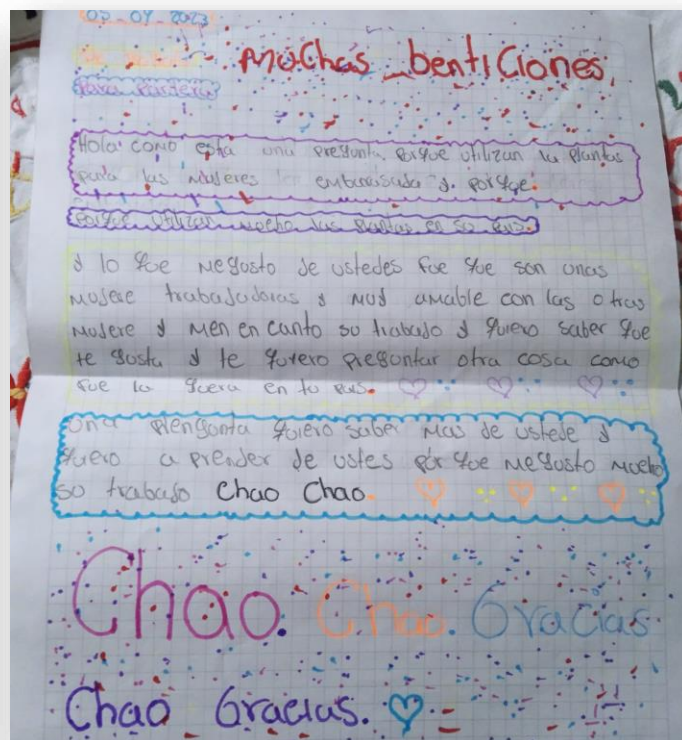 05 04 2023
muchas bentiCiones,
De
Para Partera
Hola como esta una preSunta. Porque utilizan la plantas
para las mujeres embarasada y. porqe.
Porque utilizan mucho las plantas en su país.
y lo que meGusto de ustedes fue que son unas
mujere trabajadoras y muy amable con las otras
mujere y men en canto su trabajo y quiero saber que
te gusta y te quiero preguntar otra cosa como
fue la guera en tu país.
una plengonta quiero saber mas de ustede y
quiero a prender de ustes por que megusto mucho
so trabajo Chao Chao.
Chao. Chao. Gracias
Chao Gracias.